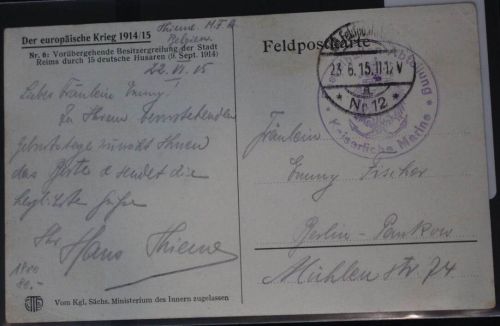 Der europäische Krieg 1914/15
Nr. 6: Vorübergehende Besitzergreifung der Stadt
Reims durch 15 deutsche Husaren (9. Sept. 1914)
Thieme. M.F.A
Belgien
22. VI. 15
Liebes Fräulein Emmy!
Zu Ihrem bevorstehenden
Geburtstage wünscht Ihnen
das Beste & sendet die
herzlichsten Grüße
Ihr Hans Thieme
1800
80.-
Vom Kgl. Sächs. Ministerium des Innern zugelassen
Feldpostkarte
23.6.15.11-12V
* Nr. 12 *
Kaiserliche Marine
Fräulein
Emmy Fischer
Berlin-Pankow
Mühlenstr. 74